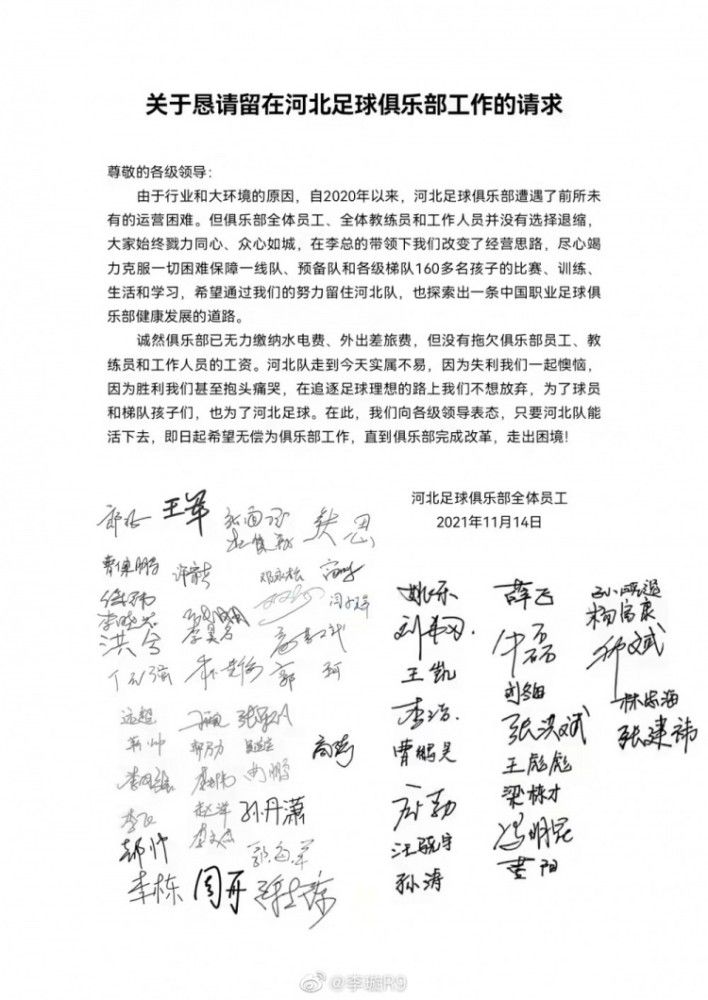 关于恳请留在河北足球俱乐部工作的请求
尊敬的各级领导：
由于行业和大环境的原因，自2020年以来，河北足球俱乐部遭遇了前所未
有的运营困难。但俱乐部全体员工、全体教练员和工作人员并没有选择退缩，
大家始终戮力同心、众心如城，在李总的带领下我们改变了经营思路，尽心竭
力克服一切困难保障一线队、预备队和各级梯队160多名孩子的比赛、训练、
生活和学习，希望通过我们的努力留住河北队，也探索出一条中国职业足球俱
乐部健康发展的道路。
诚然俱乐部已无力缴纳水电费、外出差旅费，但没有拖欠俱乐部员工、教
练员和工作人员的工资。河北队走到今天实属不易，因为失利我们一起懊恼，
因为胜利我们甚至抱头痛哭，在追逐足球理想的路上我们不想放弃，为了球员
和梯队孩子们，也为了河北足球。在此，我们向各级领导表态，只要河北队能
活下去，即日起希望无偿为俱乐部工作，直到俱乐部完成改革，走出困境！
河北足球俱乐部全体员工
2021年11月14日
王军
姚乐
薛飞
杨富康
王凯
李浩
张洪斌
林志海
张建祎
曹鹏昊
王彪彪
梁栋才
远超
高涛
孙丹潇
汪晓宇
冯明昆
黄阳
孙涛
郝帅
李栋
周开
@李璇R9